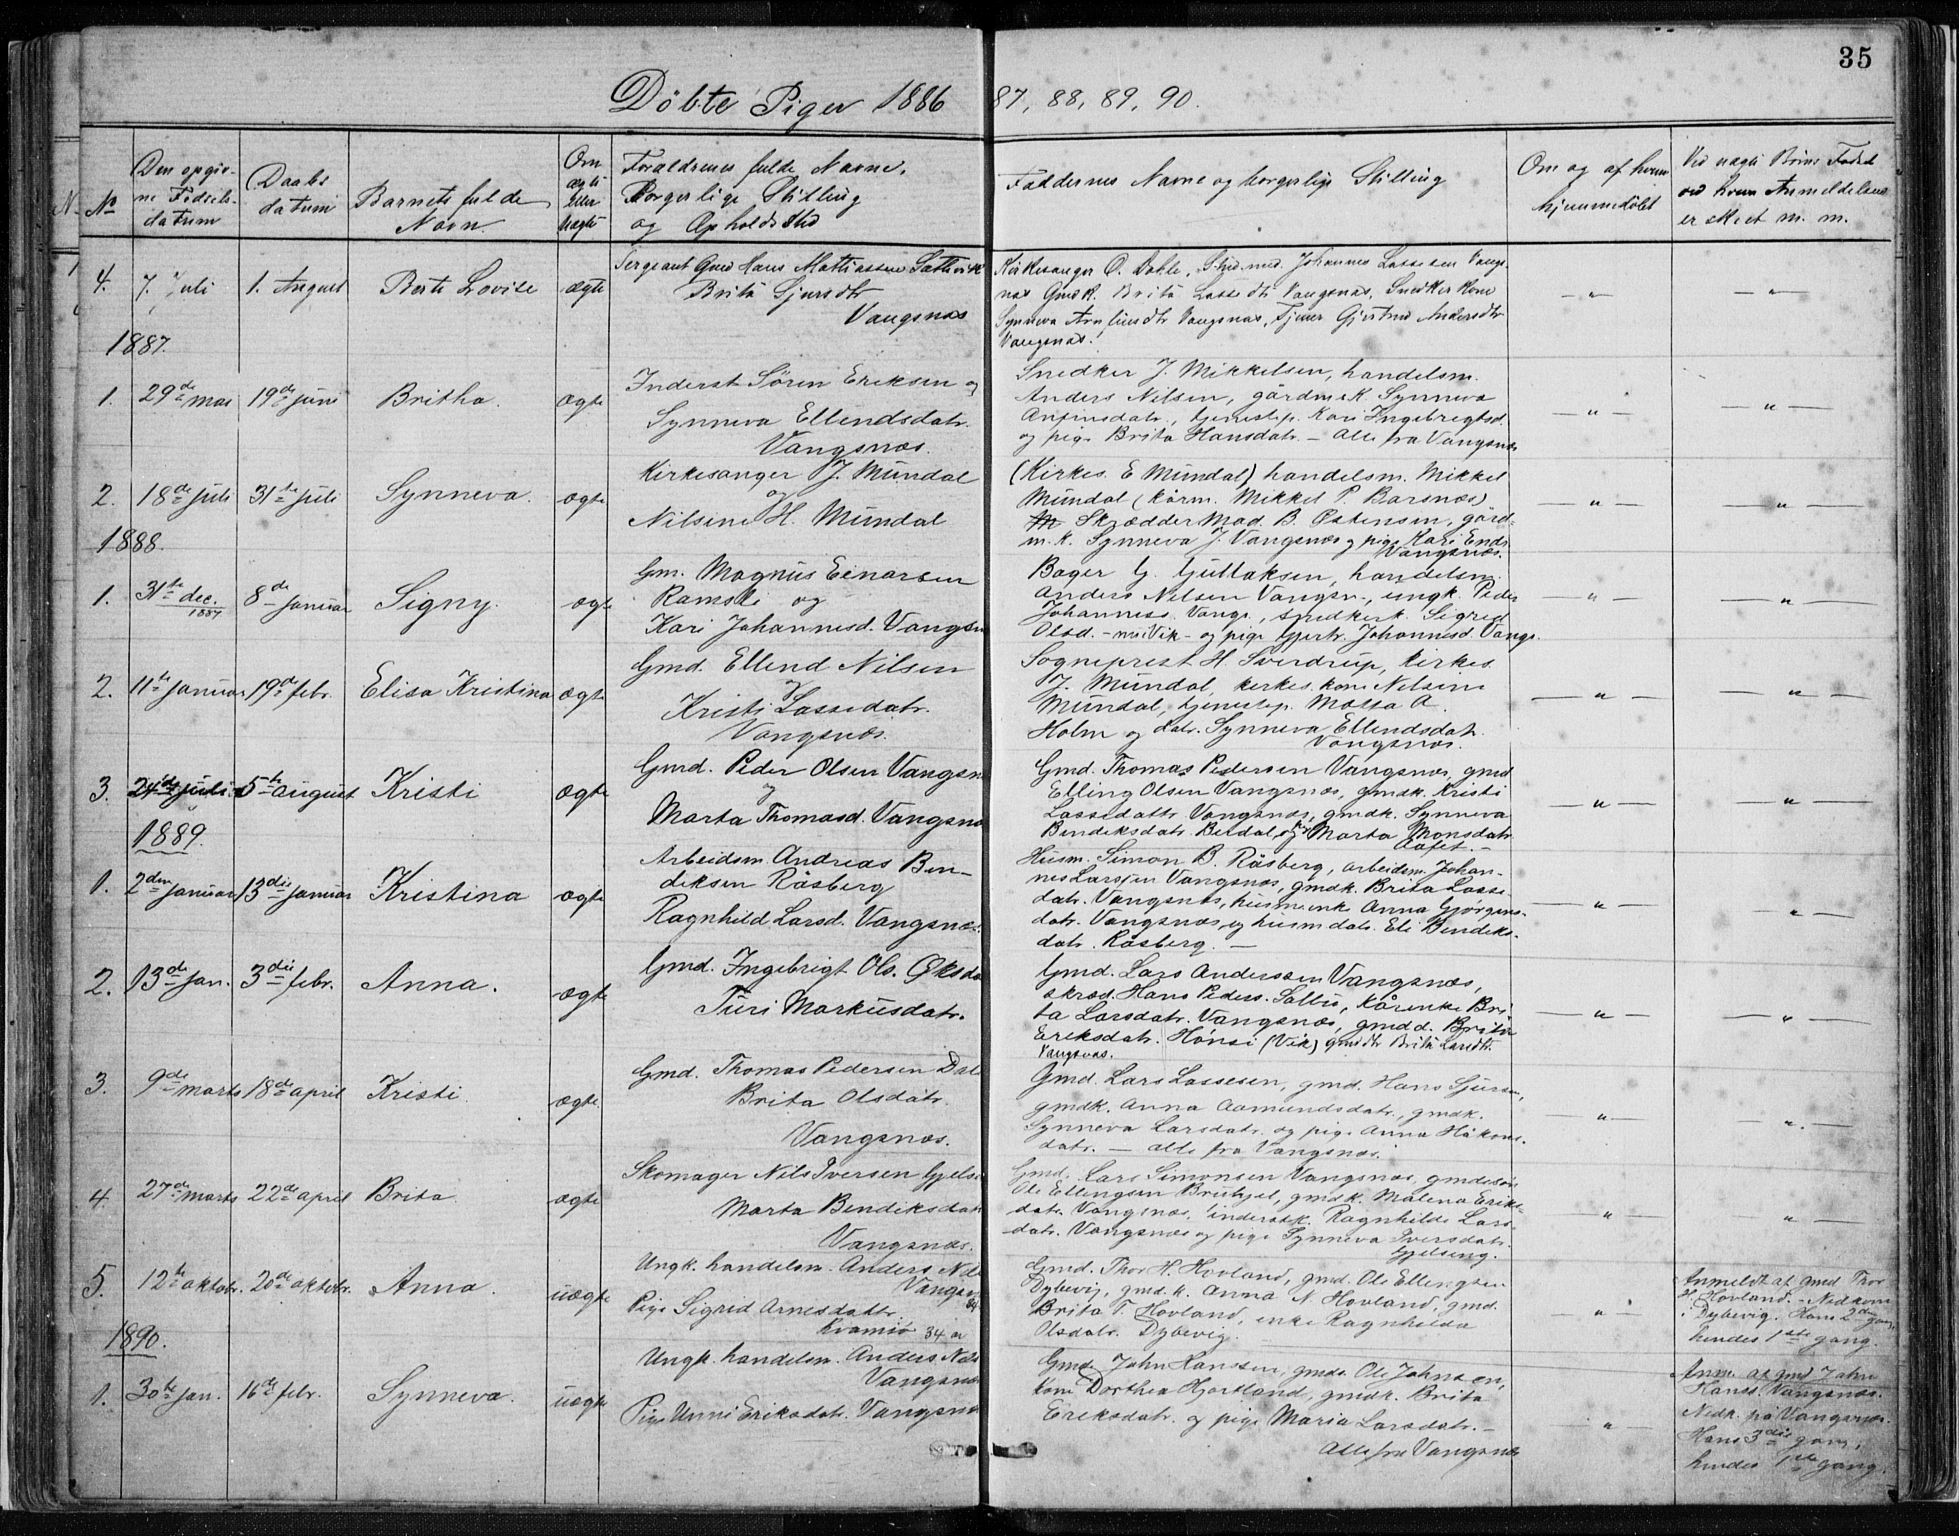 35
Döbte Piger 1886 87, 88, 89, 90.
N.
No
Den opgiv-
ne Fødsels-
datum
Daabs
datum
Barnets fulde
Navn.
Om
ægte
eller
uægte
Forældrenes fulde Navne,
Borgerlige Stilling
og Opholdssted
Faddernes Navne og borgerlige Stilling
Om og af hvem
hjemmedøbt
Ved uægte Børns Fødsel
ved hvem Anmeldelsen
er skeet m. m.
4. 7. Juli 1. August Berte Lovise ægte
Sergeant Gmd Hans Mathiassen
Brita Sjursdtr
Vangsnæs
Kirkesanger O. Dahle, Johannes Lassesen Vangs-
næs Gmdk. Brita Lassedtr Vangsnæs, Snedker Kone
Synneva Arnfinsdtr Vangsnæs, Tjener Gjertrud Andersdtr
Vangsnæs.
— " — — " —
1887.
1. 29de mai 19de juni Britha. ægte
Inderst Sören Eriksen og
Synneva Ellendsdatr.
Vangsnæs.
Snedker J. Mikkelsen, handelsm.
Anders Nilsen, gårdmk Synneva
Anfinsdatr, tjenestep. Kari Ingebregtsd.
og pige Brita Hansdatr. – Alle fra Vangsnæs
— " — — " —
2. 18de juli 31te juli Synneva. ægte
Kirkesanger J. Mundal
og
Nilsine H. Mundal
(Kirkes. E Mundal) handelsm. Mikkel
Mundal (kårm. Mikkel P. Barsnæs)
Skrædder Mad. B. Östensen, gård-
m.k. Synneva J. Vangsnæs og pige Kari Ends
Vangsnæs.
— " — — " —
1888.
1. 31te dec. 1887 8de januar Signy. ægte
Gm. Magnus Einarsen
Ramsli og
Kari Johannesd. Vangsn
Bager G. Gullaksen, handelsm.
Anders Nilsen Vangsn., ungk. Peder
Johanness. Vangs., snedkerk. Sigrid
Olsd. – nu i Vik – og pige Gjertr. Johannesd. Vangs.
— " — — " —
2. 11te januar 19de febr. Elisa Kristina ægte
Gmd. Ellend Nilsen
og
Kristi Lassedatr.
Vangsnæs.
Sogneprest H. Sverdrup, kirkes.
J. Mundal, kirkes. kone Nilsine
Mundal, tjenestep. Massa A.
Holm og datr. Synneva Ellendsdatr.
Vangsnæs.
— " — — " —
3. 24de juli 5te august Kristi ægte
Gmd. Peder Olsen Vangsn
og
Marta Thomasd. Vangsnæ
Gmd. Thomas Pedersen Vangsnæs, gmd
Elling Olsen Vangsnæs, gmdk. Kristi
Lassedatr Vangsnæs, gmdk. Synneva
Bendiksdatr. og Marta Monsdatr
— " — — " —
1889.
1. 2den januar 13die januar Kristina ægte
Arbeidsm. Andreas Ben-
diksen Råsberg
Ragnhild Larsd. Vangsnæs.
Husm. Simon B. Råsberg, arbeidsm. Johan-
nes Larssen Vangsnæs, gmdk. Brita Lasse-
datr. Vangsnæs, husm.enk Anna Gjørgens-
datr. Vangsnæs og husmdatr. Eli Bendiks-
datr. Råsberg. —
— " — — " —
2. 13de jan. 3die febr. Anna. ægte
Gmd. Ingebrigt Ols. Öksda
Turi Markusdatr.
Gmd. Lars Andersen Vangsnæs,
skræd. Hans Peders. Sallis, kårenke Bri-
ta Larsdatr. Vangsnæs, gmdd. Brita
Eriksdatr. Hönsi (Vik) gmddtr Brita Larsdtr.
Vangsnæs.
— " — — " —
3. 9de marts 18de april Kristi. ægte
Gmd. Thomas Pedersen Dal
Brita Olsdatr.
Vangsnæs.
Gmd. Lars Lassesen, gmd. Hans Sjursen,
gmdk. Anna Aamundsdatr., gmdk.
Synneva Larsdatr. og pige Anna Håkons-
datr. – alle fra Vangsnæs.
— " — — " —
4. 27de marts 22de april Brita ægte
Skomager Nils Iversen Gjelse
Marta Bendiksdatr
Vangsnæs.
Gmd. Lars Simonsen Vangsnæs, gmdssön
Ole Ellingsen gmdk. Malena Eriks-
datr. Vangsnæs, inderstk. Ragnhilda Lars-
datr. Vangsnæs og pige Synneva Iversdatr.
Gjelseng.
— " — — " —
5. 12te oktobr. 20de oktobr. Anna. uægte
Ungk. handelsm. Anders Nils
Vangsn
34
Pige Sigrid Arnesdatr
Kvamsö 34 år
Gmd. Thor H. Hovland, gmd. Ole Ellingsen
Dybevig, gmd.k. Anna N. Hovland, gmd.
Brita T. Hovland, enke Ragnhilda
Olsdatr. Dybevig.
— " —
Anmeldt af gmd Thor
H. Hovland. – Nedkom
i Dybevig. Hans 2den gang,
hendes 1ste gang.
1890.
1. 30te jan. 16de febr. Synneva. uægte
Ungk. handelsm. Anders Nils
Vangsnæ
Pige Unni Eriksdatr. Vangsnæ
Gmd. John Hanssen, gmds. Ole Johnsen,
kone Dorthea Hjortland, gmdk. Brita
Eriksdatr. og pige Maria Larsdatr. –
Alle fra Vangsnæs
"
Anm. af gmd John
Hanss. Vangsnæs.
Nedk. på Vangsnæs.
Hans 3die gang,
hendes 1ste gang.